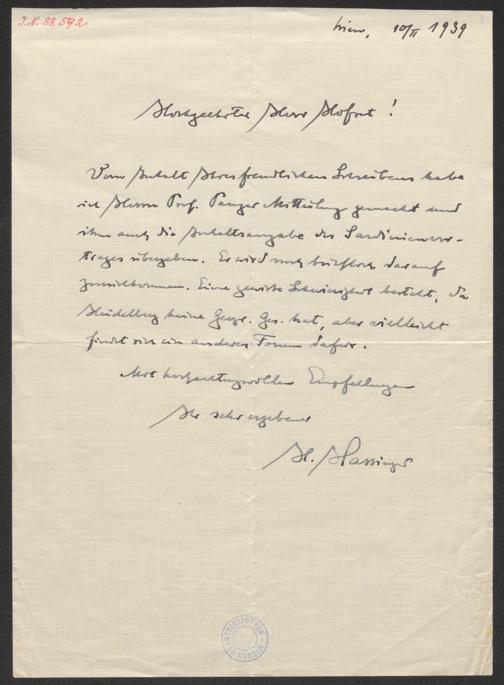 J.N. 88.592
Wien, 10/II 1939
Hochgeehrter Herr Hofrat!
Vom Inhalt Ihres freundlichen Schreibens habe
ich Herrn Prof. Panzer Mitteilung gemacht und
ihm auch die Inhaltsangabe des Sardinienvor-
trages übergeben. Er wird noch brieflich darauf
zurückkommen. Eine gewisse Schwierigkeit besteht, da
Heidelberg keine Geogr. Ges. hat, aber vielleicht
findet sich ein anderes Forum dafür.
Mit hochachtungsvollen Empfehlungen
Ihr sehr ergebener
H. Hassinger